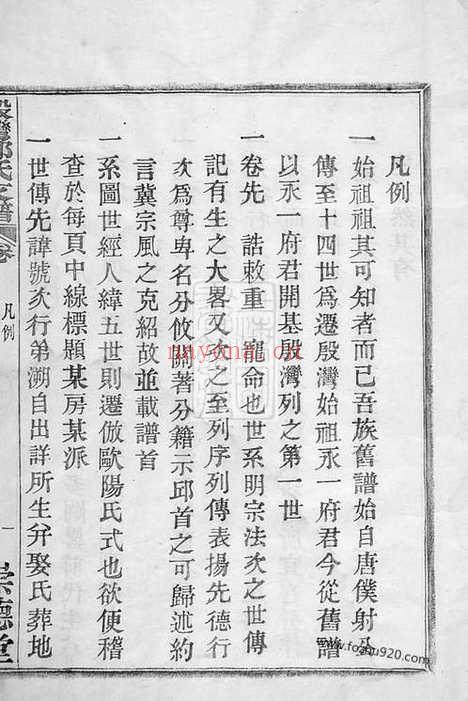 凡例
一始祖祖其可知者而已吾族舊譜始自唐僕射
傳至十四世爲遷殷灣始祖永一府君今從舊譜
以永一府君開基殷灣列之第一世
一卷先 誥敕重 寵命也世系明宗法次之世傳
記有生之大畧又次之至列序列傳表揚先德行
次爲尊卑名分攸關著分籍示邱首之可歸述約
言冀宗風之克紹故並載譜首
一系圖世經人緯五世則遷倣歐陽氏式也欲便稽
查於每頁中線標題某房某派
一世傳先諱號次行弟溯自出詳所生并娶氏葬地
殷灣 氏支譜 卷
凡例
一
崇德堂
nayona.cn
www.fozhu920.com